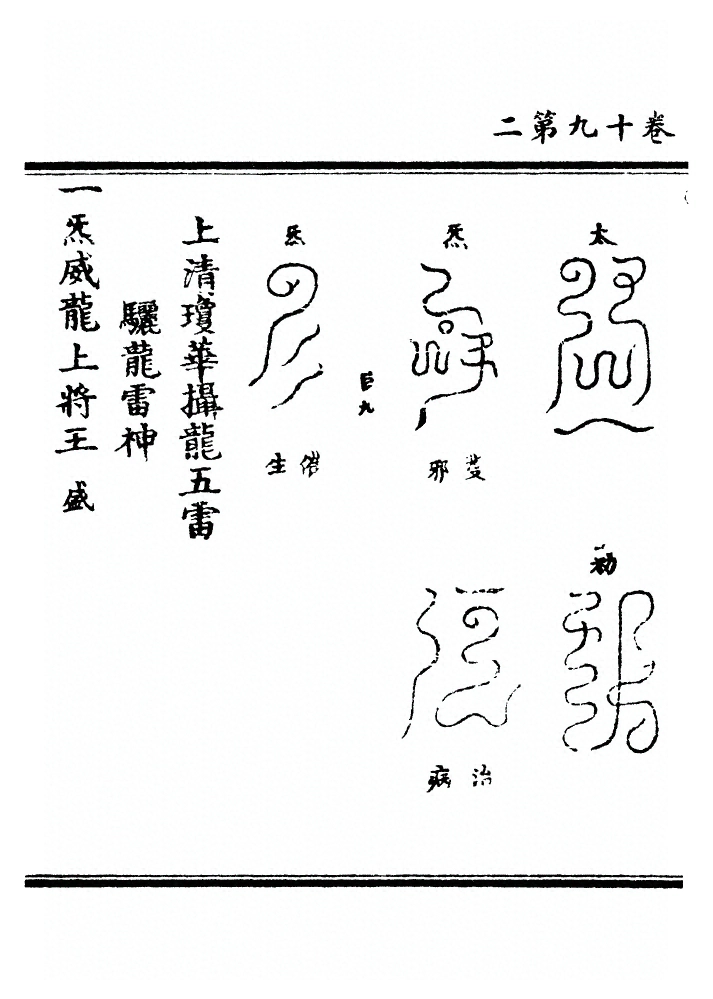 卷十九第二
太
勑
炁
治病
炁
催生
巨九
上清瓊華攝龍五雷
驪龍雷神
一炁威龍上將王盛